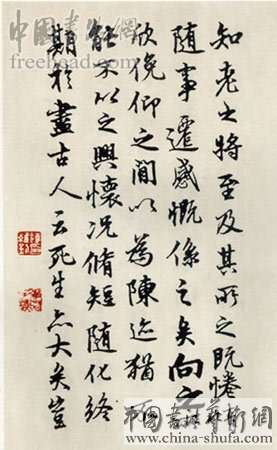 中国书法網
freehead.com
知老之將至及其所之既惓情
隨事遷感慨係之矣向之所
欣俛仰之閒以為陳迹猶
能不以之興懷况脩短隨化終
期於盡古人云死生亦大矣豈
www.china-shufa.com